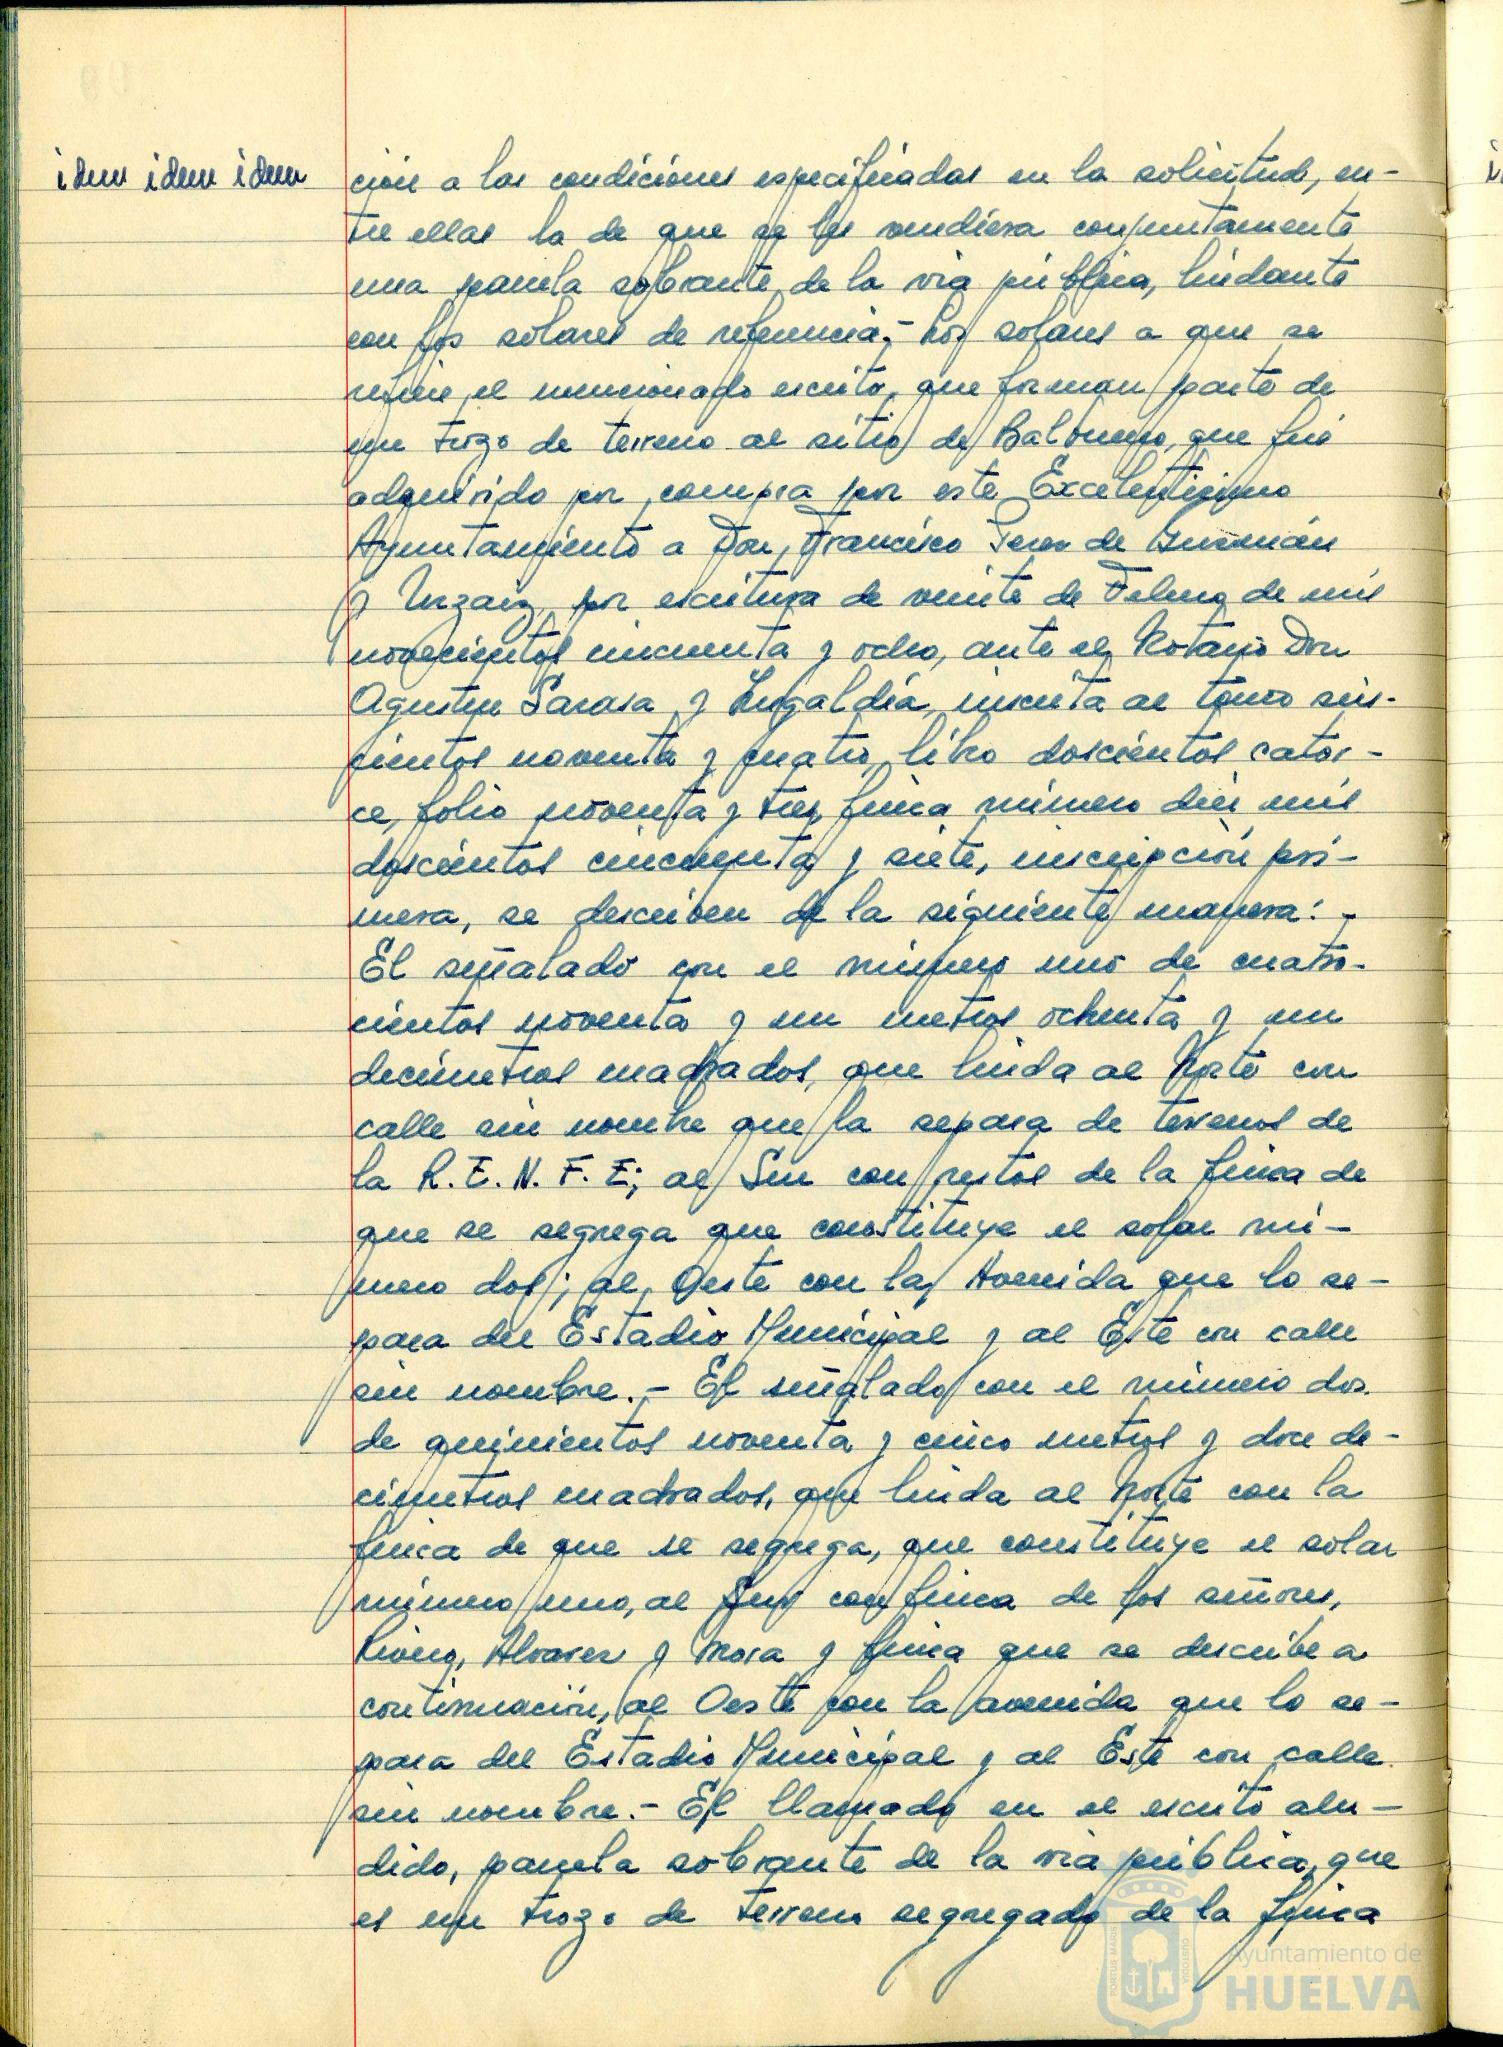 idem idem idem
ción a las condiciones especificadas en la solicitud, en-
tre ellas la de que se les vendiera conjuntamente
una parcela sobrante de la via pública, lindante
con los solares de referencia.- Los solares a que se
refiere el mencionado escrito, que forman parte de
un trozo de terreno al sitio de Balbueno, que fué
adquirido por compra por este Excelentísimo
Ayuntamiento a Don Francisco Perez de Guzmán
y Urzaiz, por escritura de veinte de Febrero de mil
novecientos cincuenta y ocho, ante el Notario Don
Agustin Sarasa y Zugaldía, inscrita al tomo seis-
cientos noventa y cuatro, libro doscientos cator-
ce, folio noventa y tres, finca número diez mil
doscientos cincuenta y siete, inscripción pri-
mera, se describen de la siguiente manera: -
El señalado con el número uno de cuatro-
cientos noventa y un metros ochenta y un
decimetros cuadrados, que linda al Norte con
calle sin nombre que la separa de terrenos de
la R.E.N.F.E; al Sur con restos de la finca de
que se segrega que constituye el solar nú-
mero dos; al Oeste con la Avenida que lo se-
para del Estadio Municipal y al Este con calle
sin nombre.- El señalado con el número dos
de quinientos noventa y cinco metros y doce de-
cimetros cuadrados, que linda al Norte con la
finca de que se segrega, que constituye el solar
número uno, al Sur con finca de los señores,
Rivero, Alvarez y Mora y finca que se describe a
continuación, al Oeste con la avenida que lo se-
para del Estadio Municipal y al Este con calle
sin nombre.- El llamado en el escrito alu-
dido, parcela sobrante de la via pública, que
es un trozo de terreno segregado de la finca
Ayuntamiento de
HUELVA